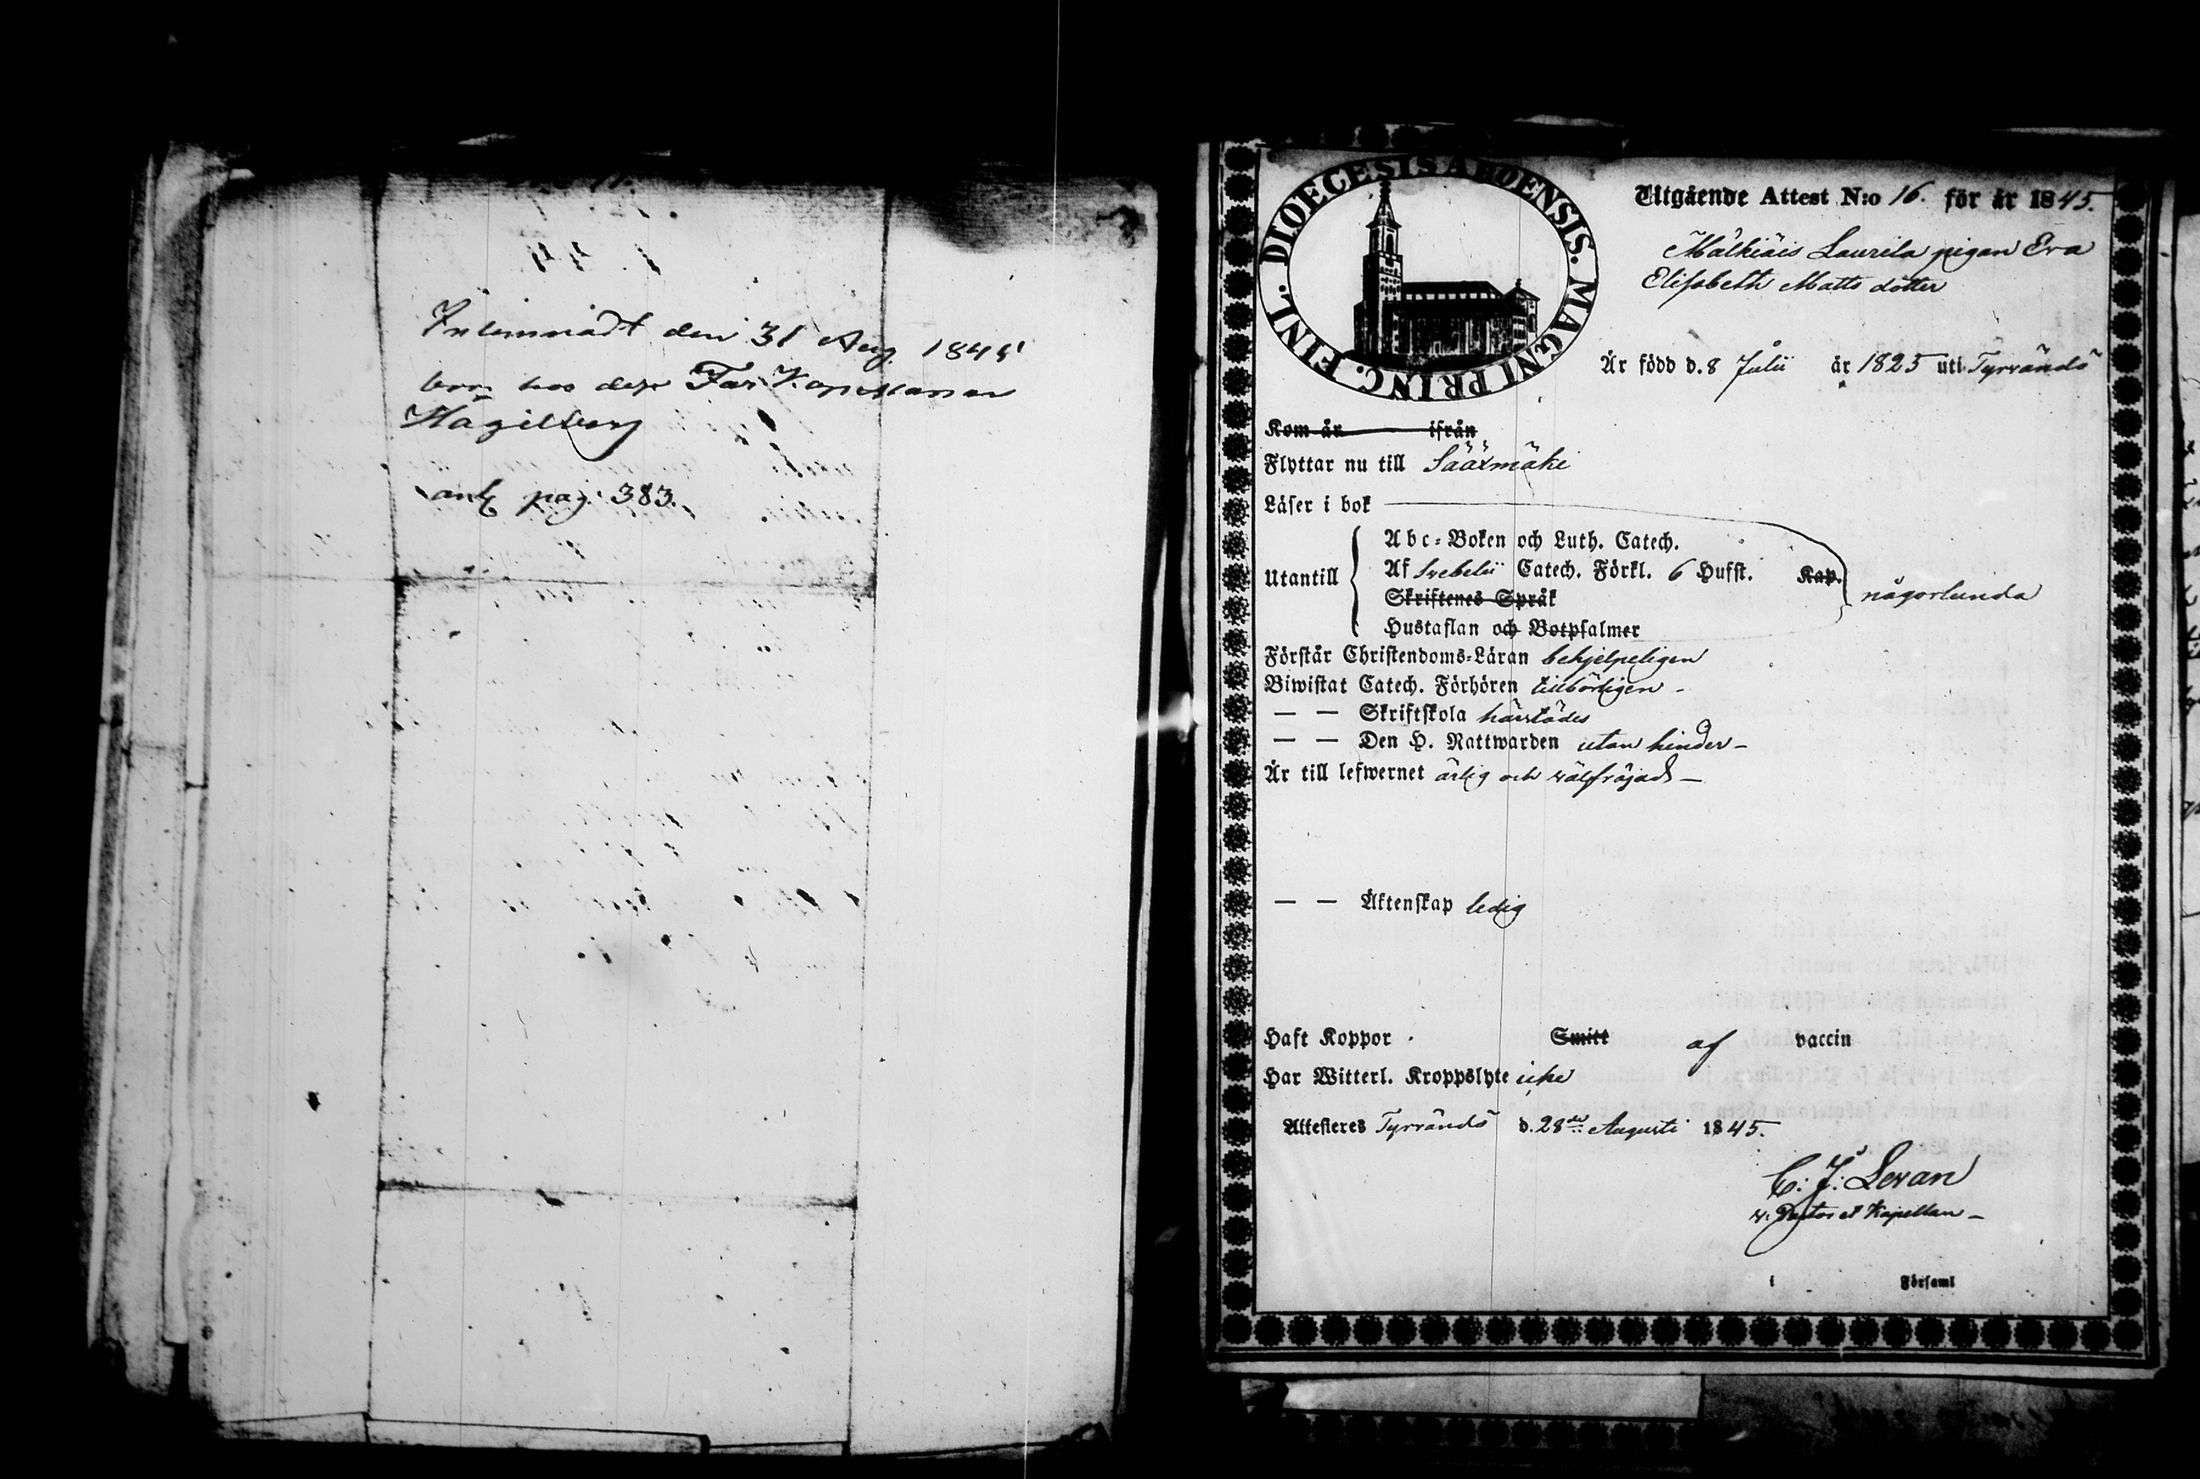 Inlemnadt den 31 Aug 1845
hos Kapellanen
Hagelberg
ant pag: 383.
DIOECESIS ABOENSIS. MAGNI PRINC. FINL.
Utgående Attest N:o 16. för år 1845.
Mälkiäis Laurila pigan Eva
Elisabeth Matts dotter
Är född d. 8 Julii år 1825 uti Tyrvändö
Kom år ifrån
Flyttar nu till Sääxmäki
Läser i bok
Utantill
Abc-Boken och Luth. Catech.
Af Svebelii Catech. Förkl. 6 Hufst. Kap.
Skriftenes Språk
Hustaflan och Botpsalmer
någorlunda
Förstår Christendoms-Läran behjelpeligen
Biwistat Catech. Förhören tillbörligen –
— — Skriftskola härstädes
— — Den H. Nattwarden utan hinder –
Är till lefwernet ärlig och välfräjdad –
— — Äktenskap ledig
Haft Koppor Smitt af vaccin
Har Witterl. Kroppslyte icke
Attesteres Tyrvändö d. 28de Augusti 1845.
C: J: Levan
v. Pastor et Kapellan –
i Församl